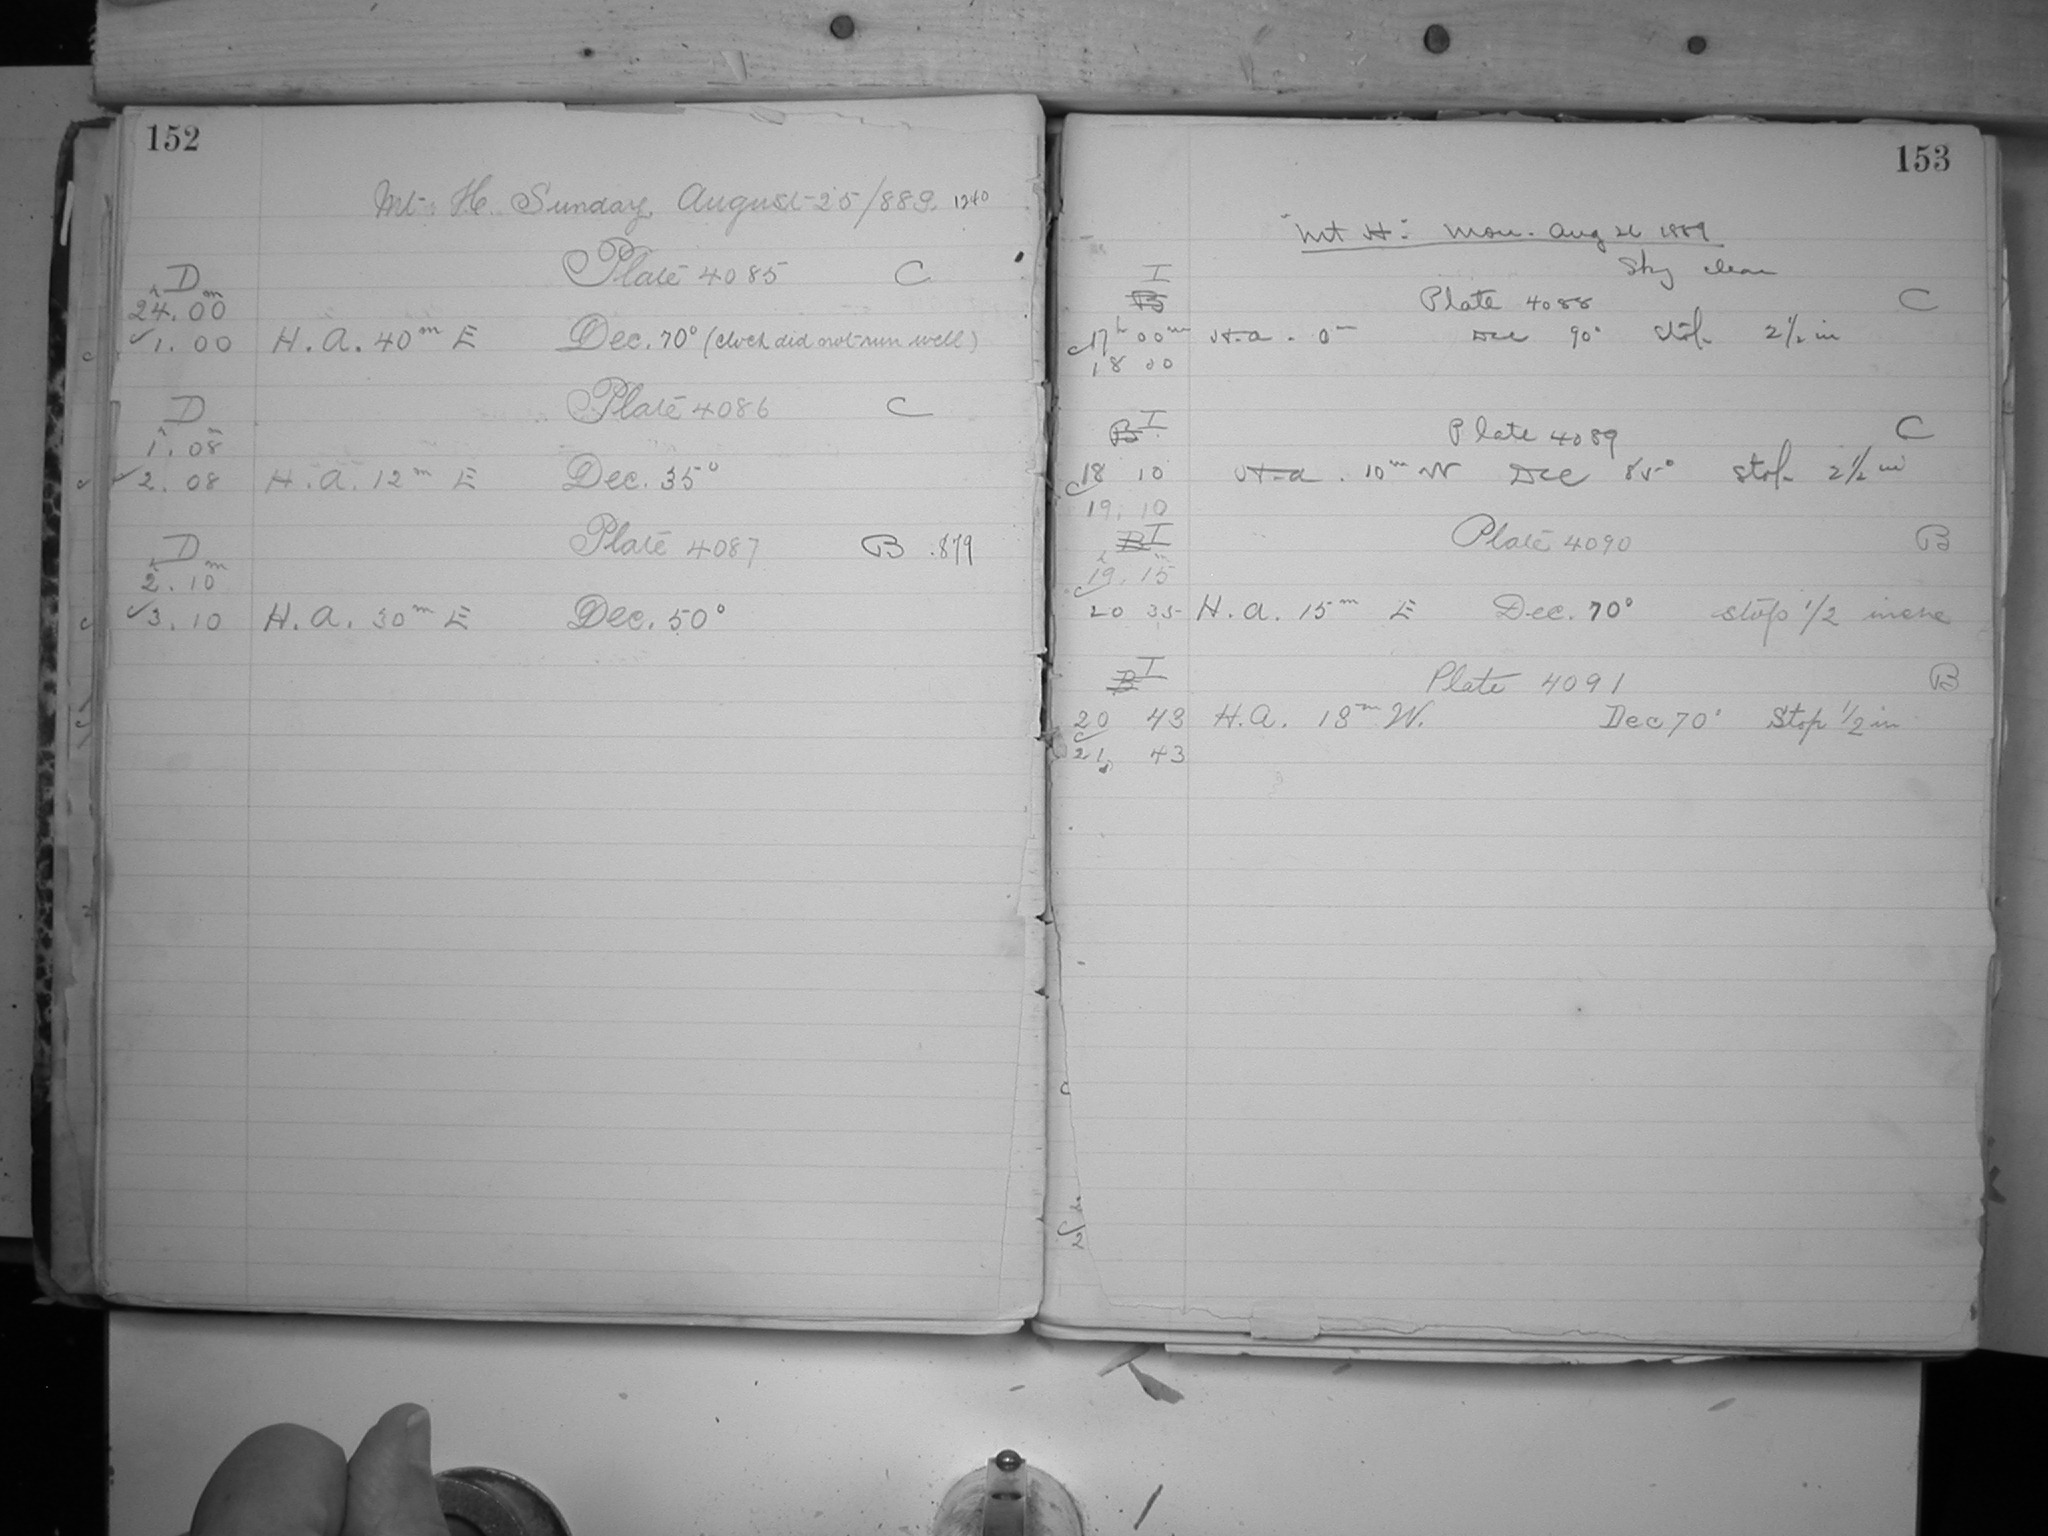 152
Mt. H. Sunday, August 25/889. 1240
D Plate 4085 C
h m
24.00
✓1.00 H.A. 40m E Dec. 70° (clock did not run well)
D Plate 4086 C
h m
1.08
✓2.08 H.A. 12m E Dec. 35°
D Plate 4087 B .879
h m
2.10
✓3.10 H.A. 30m E Dec. 50°
153
Mt H. Mon. Aug 26 1889
Sky clear
I
B Plate 4088 C
17h 00m H.a. 0m Dec 90° Stop 2 1/2 in
18 00
B I Plate 4089 C
18 10 H.a. 10m W Dec 85° stop 2 1/2 in
19. 10
B I Plate 4090 B
h m
19. 15
20 35 H.a. 15m E Dec. 70° stop 1/2 inche
B I Plate 4091 B
20 43 H.a. 18m W. Dec 70° Stop 1/2 in
21, 43